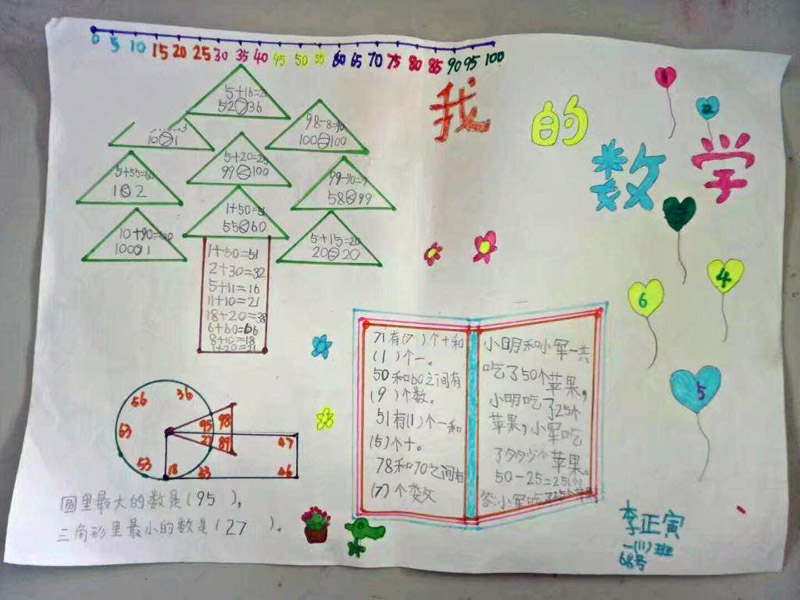 0 5 10 15 20 25 30 35 40 45 50 55 60 65 70 75 80 85 90 95 100
我的数学
5+16=2
52○36
98-8=90
100○100
10○1
5+20=25
99○100
5+55=60
1○2
99-90=9
58○99
1+50=51
55○60
10+90=100
100○1
5+15=20
20○20
1+50=51
2+30=32
5+11=16
11+10=21
18+20=38
6+60=66
8+10=18
1+20=21
1
2
3
4
6
5
71有(7)个十和
(1)个一。
50和60之间有
(9)个数。
51有(1)个一和
(5)个十。
78和70之间有
(7)个数
小明和小军一共
吃了50个苹果,
小明吃了25个
苹果,小军吃
了多少个苹果。
50-25=25(个)
答:小军吃了25个苹果
56
36
63
95
98
27
89
47
53
18
33
46
圆里最大的数是(95),
三角形里最小的数是(27)。
李正寅
一(11)班
68号